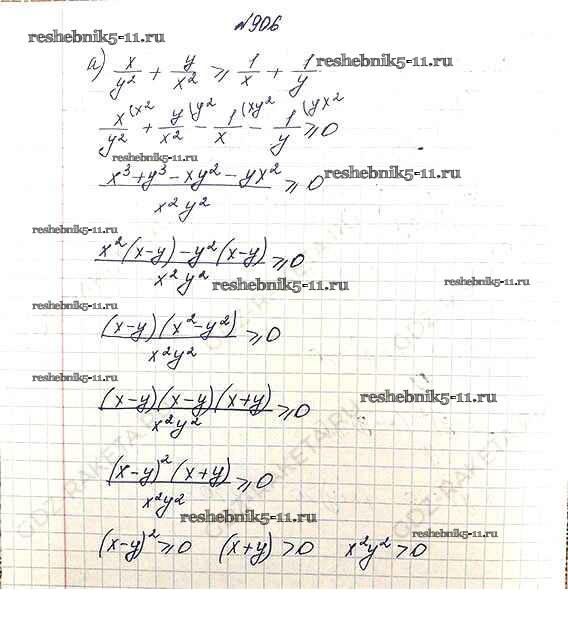 №906
reshebnik5-11.ru
reshebnik5-11.ru
а) x/y² + y/x² ≥ 1/x + 1/y
x/y² (x² + y/x² \y² - 1/x (xy² - 1/y (yx² ≥ 0
reshebnik5-11.ru
(x³ + y³ - xy² - yx²)/(x²y²) ≥ 0
reshebnik5-11.ru
reshebnik5-11.ru
(x²(x-y) - y²(x-y))/(x²y²) ≥ 0
reshebnik5-11.ru
reshebnik5-11.ru
reshebnik5-11.ru
((x-y)(x²-y²))/(x²y²) ≥ 0
reshebnik5-11.ru
((x-y)(x-y)(x+y))/(x²y²) ≥ 0
reshebnik5-11.ru
((x-y)²(x+y))/(x²y²) ≥ 0
reshebnik5-11.ru
reshebnik5-11.ru
(x-y)² ≥ 0 (x+y) > 0 x²y² > 0
GDZ-RAKETA.RU